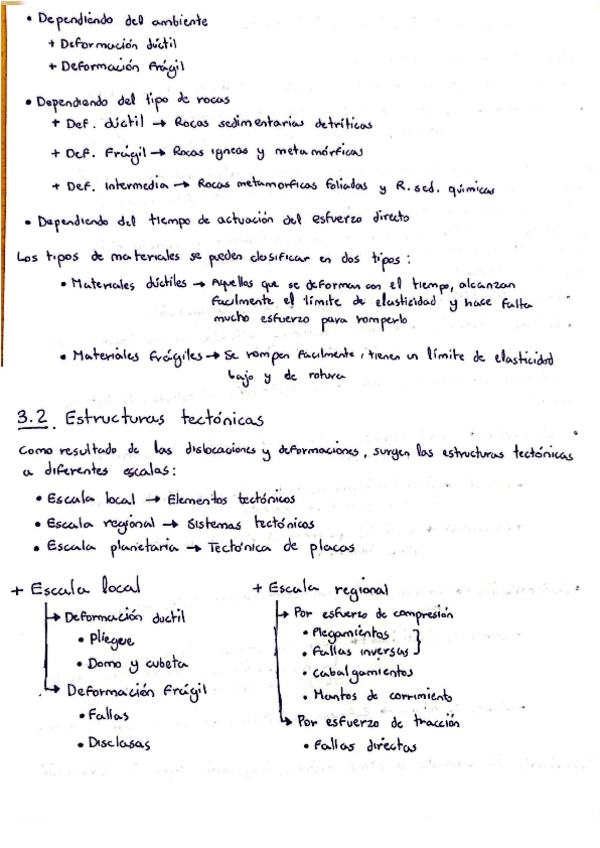 • Dependiendo del ambiente
+ Deformación dúctil
+ Deformación frágil
• Dependiendo del tipo de rocas
+ Def. dúctil → Rocas sedimentarias detríticas
+ Def. Frágil → Rocas igneas y metamórficas
+ Def. Intermedia → Rocas metamorficas foliadas y R. sed. químicas
• Dependiendo del tiempo de actuación del esfuerzo directo
Los tipos de materiales se pueden clasificar en dos tipos:
• Materiales dúctiles → Aquellos que se deforman con el tiempo, alcanzan
facilmente el límite de elasticidad y hace falta
mucho esfuerzo para romperlo
• Materiales frágiles → Se rompen facilmente, tienen un límite de elasticidad
bajo y de rotura
3.2. Estructuras tectónicas
Como resultado de las dislocaciones y deformaciones, surgen las estructuras tectónicas
a diferentes escalas:
• Escala local → Elementos tectónicos
• Escala regional → Sistemas tectónicos
• Escala planetaria → Tectónica de placas
+ Escala local
→ Deformación ductil
• Pliegue
• Domo y cubeta
→ Deformación Frágil
• Fallas
• Disclasas
+ Escala regional
→ Por esfuerzo de compresión
• Plegamientos
• Fallas inversas
• Cabalgamientos
• Mantos de corrimiento
→ Por esfuerzo de tracción
• Fallas directas